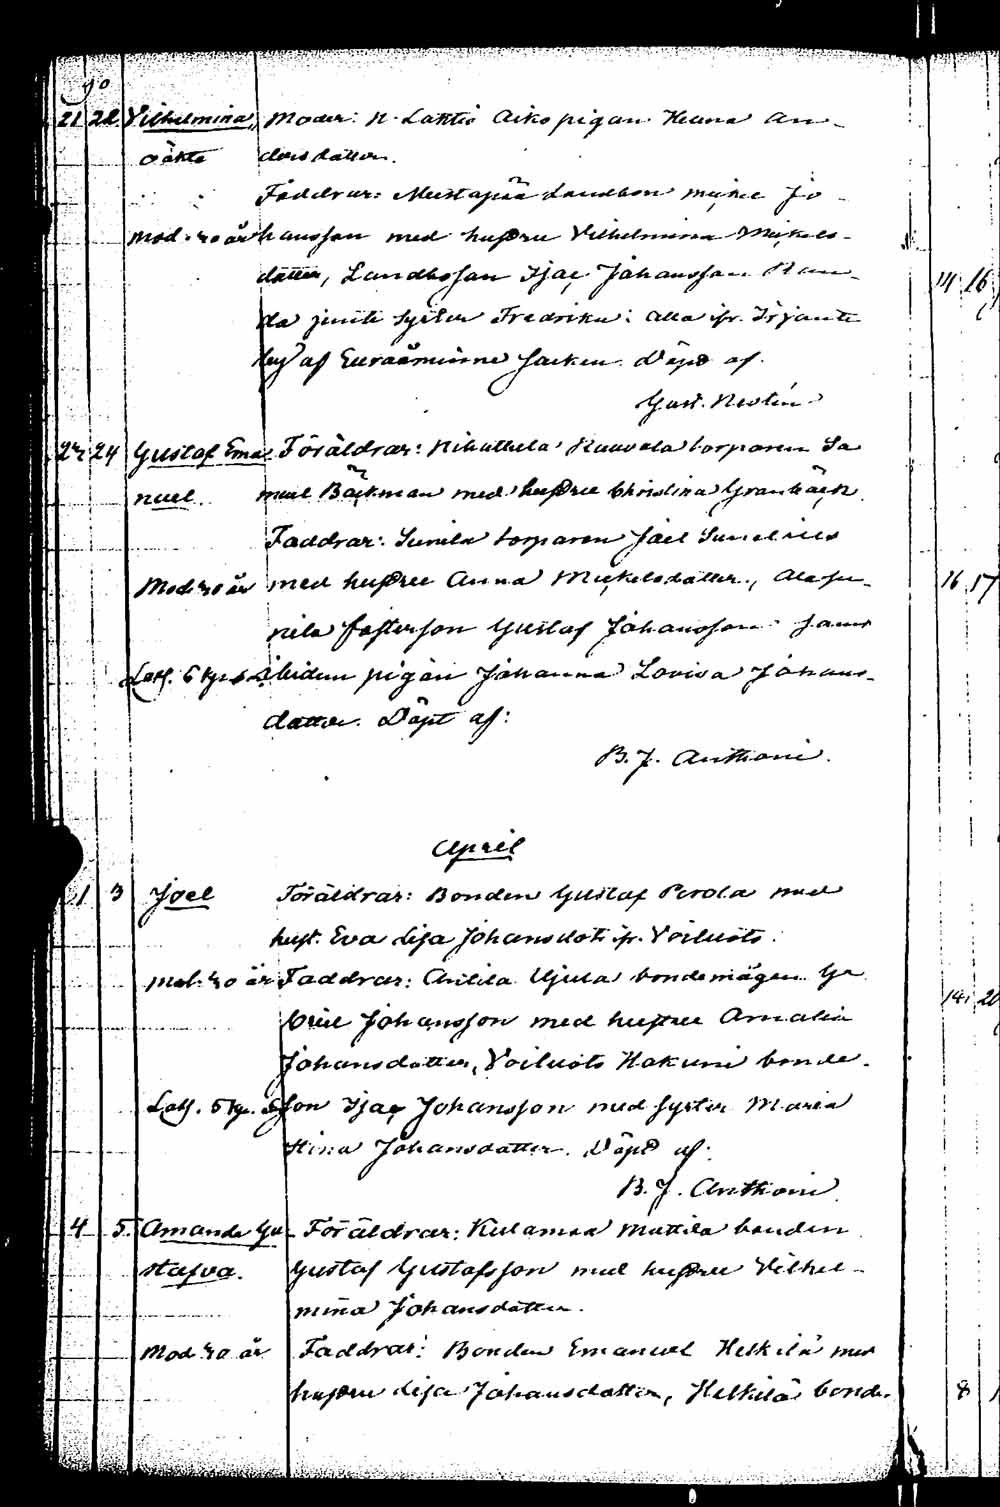 90
21 22 Vilhelmina, Moder: N. Lattis Aiko pigan Henna An-
oäkta dersdotter.
Faddrar: Mustapää Landbon Mickel Jo-
Mod. 30 år hansson med hustru Vilhelmina Mickels-
dotter, Landbosson Isac Johansson
da jemte syster Fredrika: alla ifr. Irjante
by af Euraåminne socken. Döpt af.
Gust. Nestén
22 24 Gustaf Ema- Föräldrar: Nihattula Kaavola torparen Sa
nuel. muel Bäckman med hustru Christina Granbäck
Faddrar: Sunila torparen Joel Sunelius
Mod. 30 år med hustru Anna Mickelsdotter, Ala Su-
nila fosterson Gustaf Johansson samt
pigan Johanna Lovisa Johans-
dotter. Döpt af:
B. J. Anthoni.
April
1 3 Joel Föräldrar: Bonden Gustaf Perola med
hust. Eva Lisa Johansdotr ifr. Voiluoto.
Mod. 30 år Faddrar: Anttila Ujula bondemågen Ga
briel Johansson med hustru Amalia
Johansdotter, Voiluoto Hakuni bonde-
son Isac Johansson med syster Maria
Stina Johansdotter. Döpt af:
B. J. Anthoni
4 5 Amanda Gu- Föräldrar: Kulamaa Mattila bonden
stafva. Gustaf Gustafsson med hustru Vilhel-
mina Johansdotter.
Mod 30 år Faddrar: Bonden Emanuel Heikilä med
hustru Lisa Johansdotter, Heikilä bonde-
14 16
16 17
14 20
8